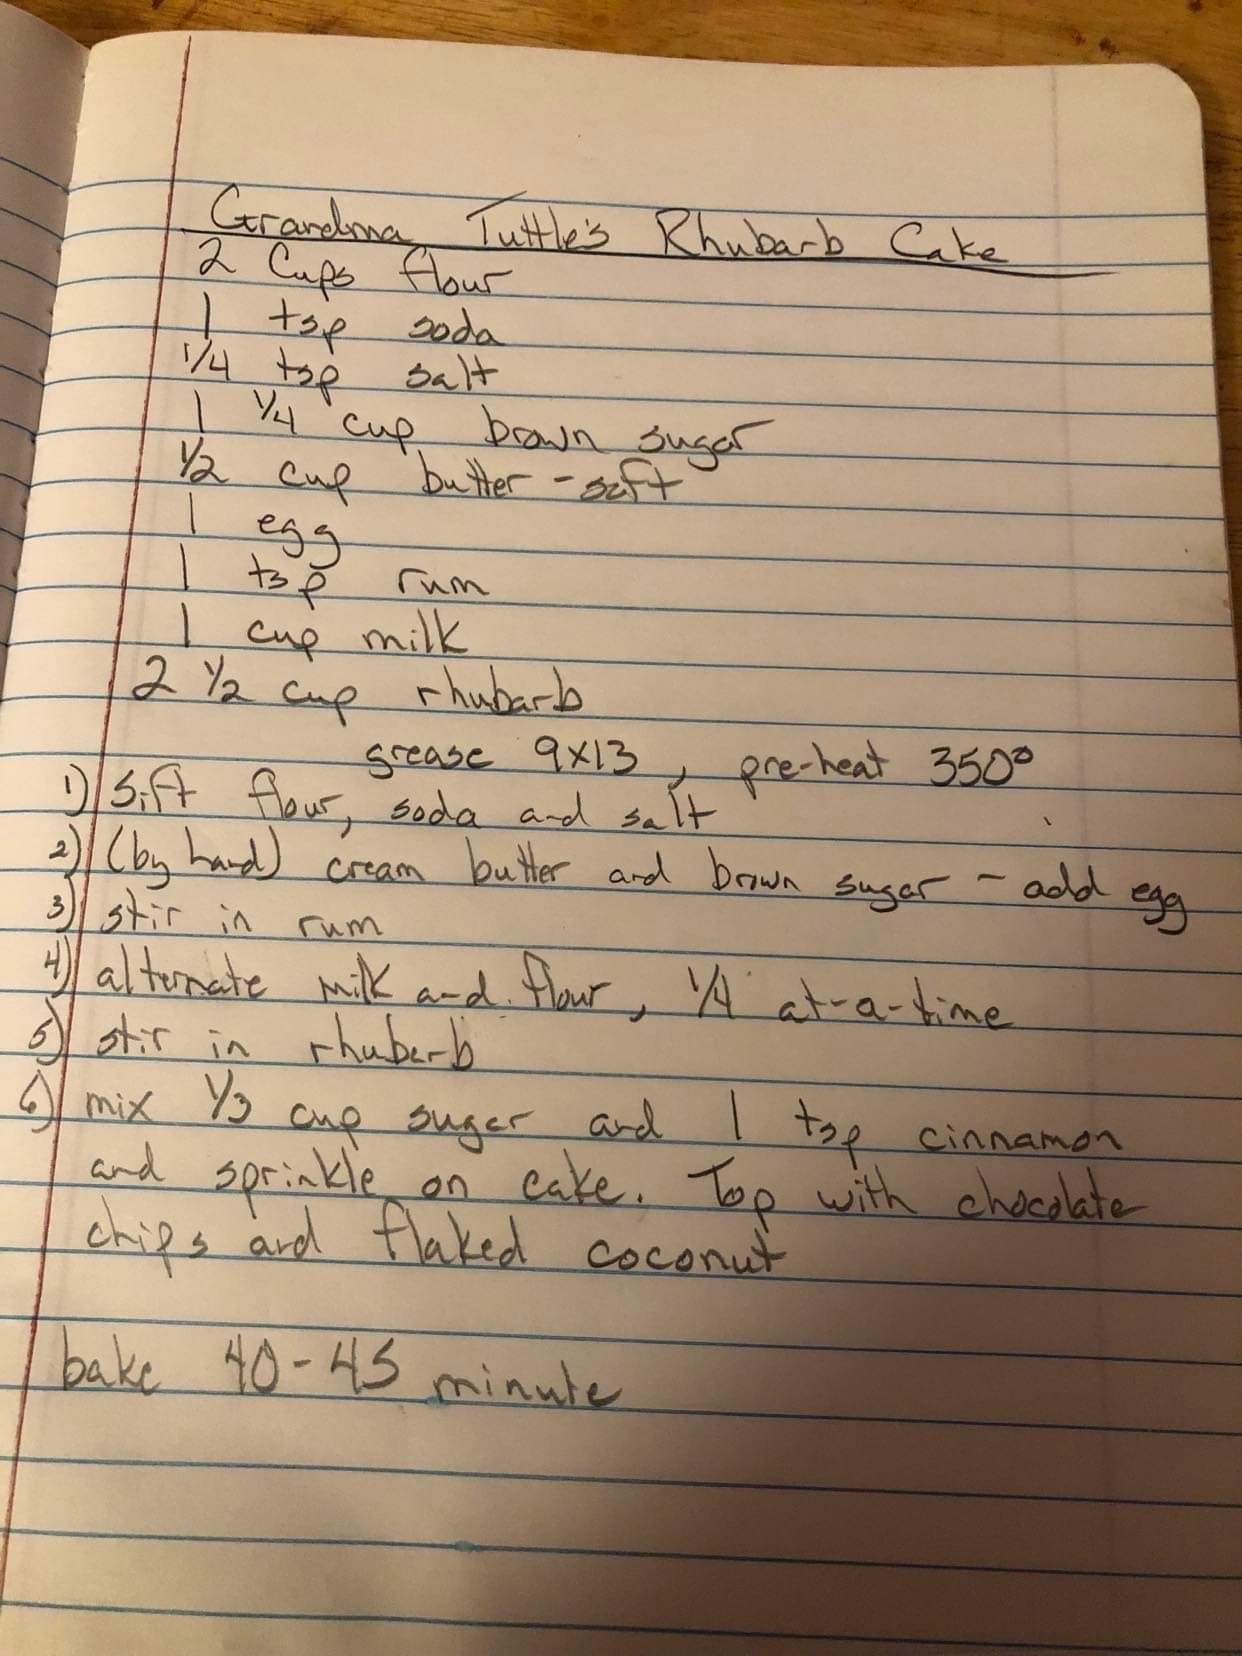 Grandma Tuttle's Rhubarb Cake
2 Cups flour
1 tsp soda
1/4 tsp salt
1 1/4 cup brown sugar
1/2 cup butter - soft
1 egg
1 tsp rum
1 cup milk
2 1/2 cup rhubarb
grease 9x13, pre-heat 350°
1) Sift flour, soda and salt
2) (by hand) cream butter and brown sugar - add egg
3) stir in rum
4) alternate milk and flour, 1/4 at-a-time
5) stir in rhubarb
6) mix 1/3 cup sugar and 1 tsp cinnamon
and sprinkle on cake. Top with chocolate
chips and flaked coconut
bake 40-45 minute